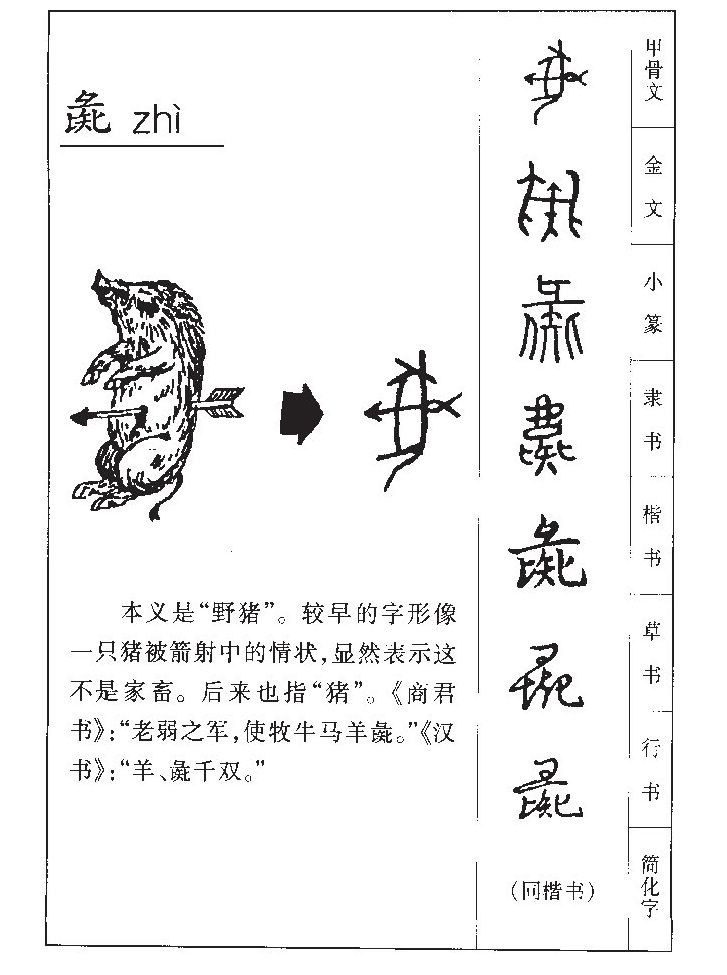 彘 zhì
本义是“野猪”。较早的字形像
一只猪被箭射中的情状,显然表示这
不是家畜。后来也指“猪”。《商君
书》:“老弱之军,使牧牛马羊彘。”《汉
书》:“羊、彘千双。”
甲骨文
金文
小篆
隶书
楷书
彘
草书
行书
简化字
(同楷书)